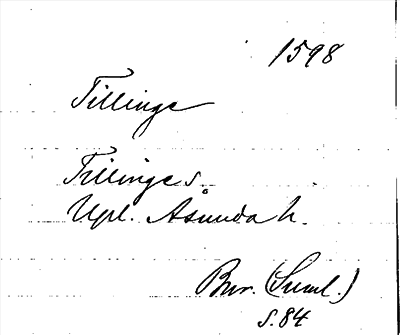 1598
Tillinge
Tillinge s.
Upl. Åsunda h.
Bur. (Suml.)
s. 84